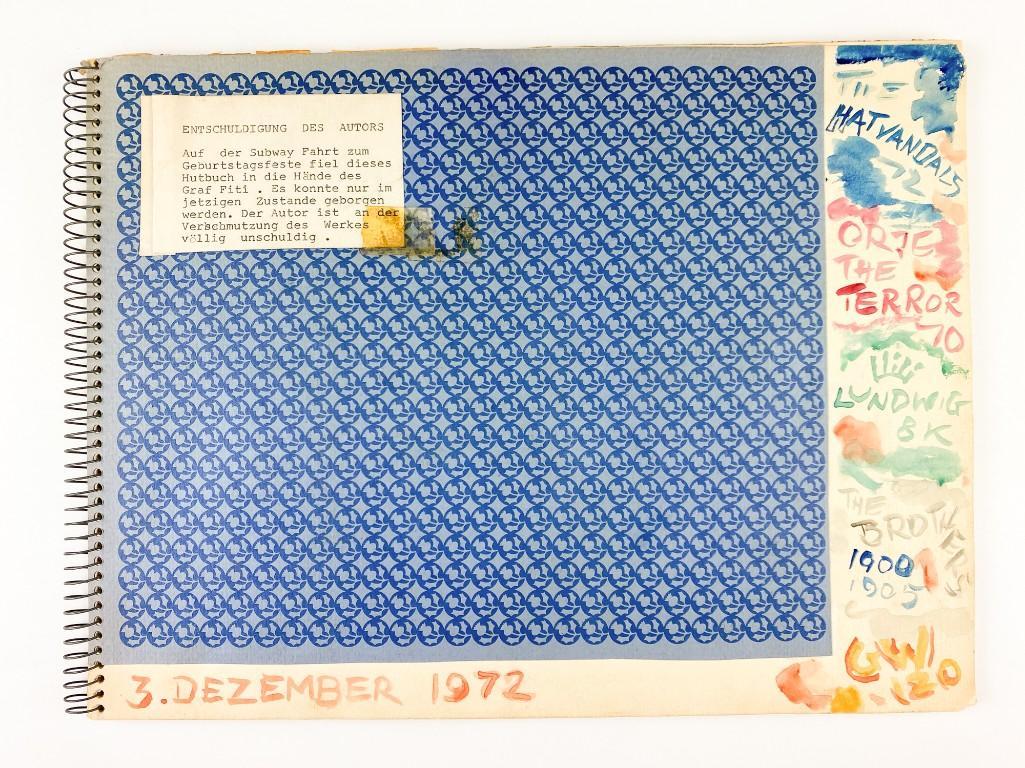 ENTSCHULDIGUNG DES AUTORS
Auf der Subway Fahrt zum
Geburtstagsfeste fiel dieses
Hutbuch in die Hände des
Graf Fiti . Es konnte nur im
jetzigen Zustande geborgen
werden. Der Autor ist an der
Verschmutzung des Werkes
völlig unschuldig .
THE
HATVANDALS
72
ORJE
THE
TERROR
70
LUNDWIG
8K
THE
BROTHERS
1900
1905
120
3. DEZEMBER 1972